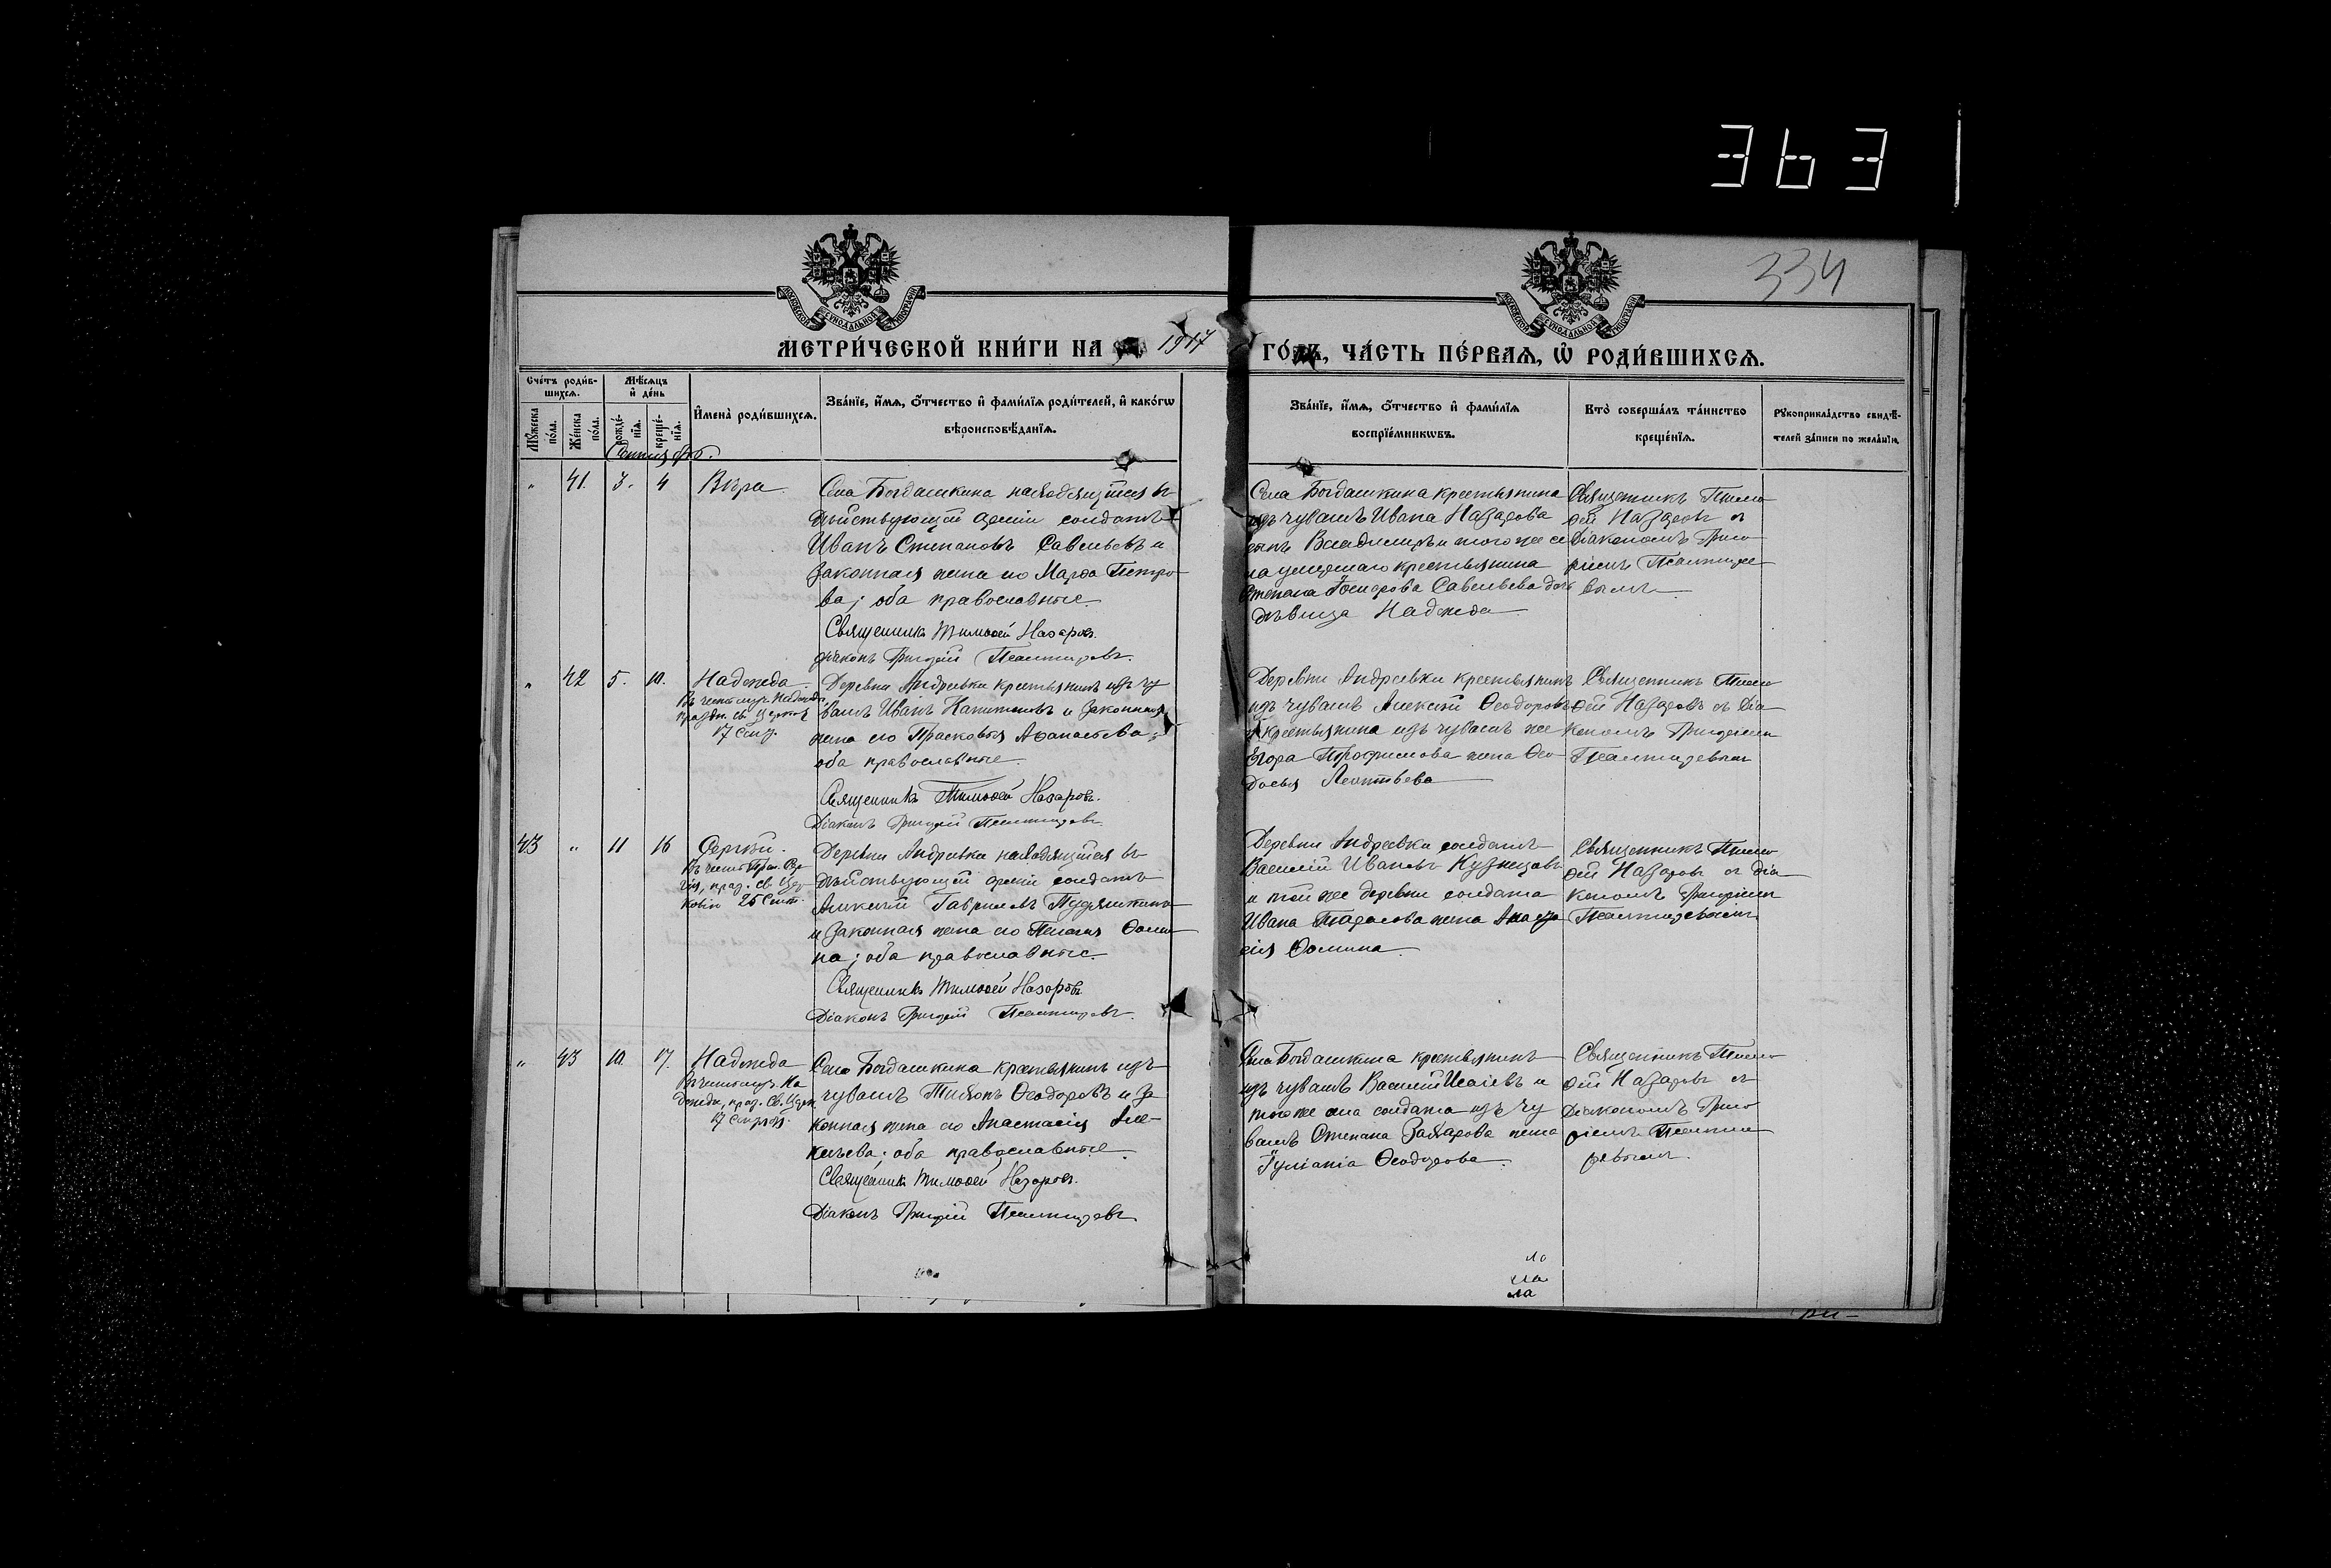 363
334
МЕТРИ́ЧЕСКОЙ КНИ́ГИ НА 1917 ГО́ДЪ, ЧА́СТЬ ПЕ́РВАѦ, Ѽ РОДИ́ВШИХСѦ.
Сче́тъ роди́в-
шихсѧ.
Мѣ́сѧцъ
и҆ де́нь
Мꙋ́жеска по́ла.
Же́нска по́ла.
рожде́-
нїѧ.
креще́-
нїѧ.
И҆мена̀ роди́вшихсѧ.
Зва́нїе, и҆́мѧ, ѻ҆́тчество и҆ фами́лїѧ роди́телей, и҆ како́гѡ
вѣроисповѣ́данїѧ.
Зва́нїе, и҆́мѧ, ѻ҆́тчество и҆ фами́лїѧ
воспрїе́мникѡвъ.
Кто̀ соверша́лъ та́инство
креще́нїѧ.
Рꙋкоприкла́дство свидѣ́-
телей за́писи по жела́нїю.
Сентябрь.
" 41. 3. 4 Вѣра
Села Богдашкина находящiйся въ
дѣйствующей армiи солдатъ
Иванъ Степановъ Савельевъ и
законная жена его Марѳа Петро-
ва; оба православные.
Священникъ Тимоѳей Назаровъ.
Дiаконъ Григорiй Псалтировъ.
Села Богдашкина крестьянина
изъ чувашъ Ивана Назарова
сынъ Владимиръ и того же се
ла умершаго крестьянина
Степана Савельева дочь
дѣвица Надежда
Священникъ Тимо-
ѳей Назаровъ съ
Дiакономъ Григо
рiемъ Псалтиро-
вымъ
" 42 5. 10. Надежда
Въ честь муч. Надежды
праздн. св. Церков
17 Сент.
Деревни Андреевки крестьянинъ изъ чу
вашъ Иванъ Капитоновъ и законная
жена его Прасковья Аѳанасьева;
оба православные.
Священникъ Тимоѳей Назаровъ.
Дiаконъ Григорiй Псалтировъ.
Деревни Андреевки крестьянинъ
изъ чувашъ Алексѣй Ѳеодоровъ
и крестьянина изъ чувашъ же
Егора Трофимова жена Ѳео-
досья Леонтьева
Священникъ Тимо
ѳей Назаровъ съ Дiа-
кономъ Григорiемъ
Псалтировымъ
43 " 11 16 Сергiй.
Въ честь Преп. Сер-
гiя, праз. св. Цер-
ковiю 25 Сент.
Деревни Андреевки находящiйся въ
дѣйствующей армiи солдатъ
Алексѣй Гавриловъ
и законная жена его Пелагiя Ѳоми-
на; оба православные.
Священникъ Тимоѳей Назаровъ
Дiаконъ Григорiй Псалтировъ.
Деревни Андреевки солдатъ
Василiй Ивановъ Кузнецовъ
и той же деревни солдата
Ивана Тарасова жена Анаста
сiя Ѳомина.
Священникъ Тимо
ѳей Назаровъ съ Дiа-
кономъ Григорiемъ
Псалтировымъ
" 43 10. 17. Надежда
Въ честь муч. На
дежды, праз. св. Церк.
17 Сентяб.
Села Богдашкина крестьянинъ изъ
чувашъ Тихонъ Ѳеодоровъ и за
конная жена его Анастасiя Але-
ксѣева; оба православные.
Священникъ Тимоѳей Назаровъ.
Дiаконъ Григорiй Псалтировъ
Села Богдашкина крестьянинъ
изъ чувашъ Василiй Исаiевъ и
того же села солдата изъ чу
вашъ Степана Захарова жена
Iулiанiа Ѳеодорова.
Священникъ Тимо
ѳей Назаровъ съ
Дiакономъ Григо
рiемъ Псалти
ровымъ.
ла
ла